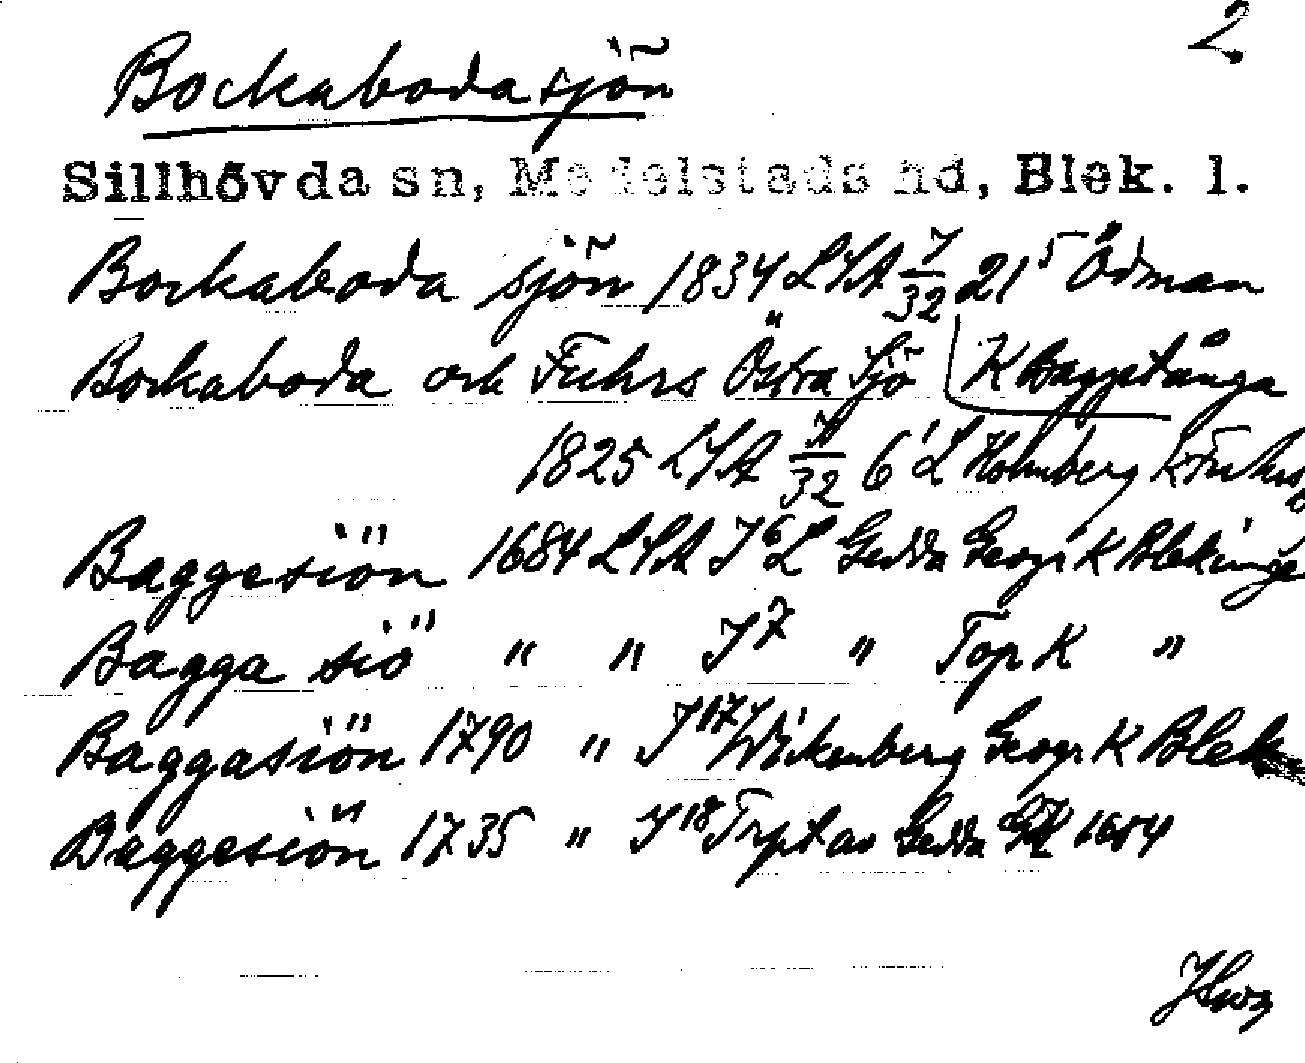 2
Bockabodasjön
Sillhövda sn, Medelstads hd, Blek. l.
Bockaboda sjön 1834 LSA 7/32 21⁵ Ödman
Bockaboda och Fuhrs Östra Sjö K Baggetånga
1825 LSA 7/32 6¹ L Holmberg K Fuhrs
Baggesiön 1684 LSA I⁶ L Gedda Geogr K Blekinge
Bagga siö " " I⁷ " Top K "
Baggasiön 1790 " I¹⁷ Wikenberg Geogr K Blek.
Baggesiön 1735 " I¹⁸ Tryst av Gedda GK 1684